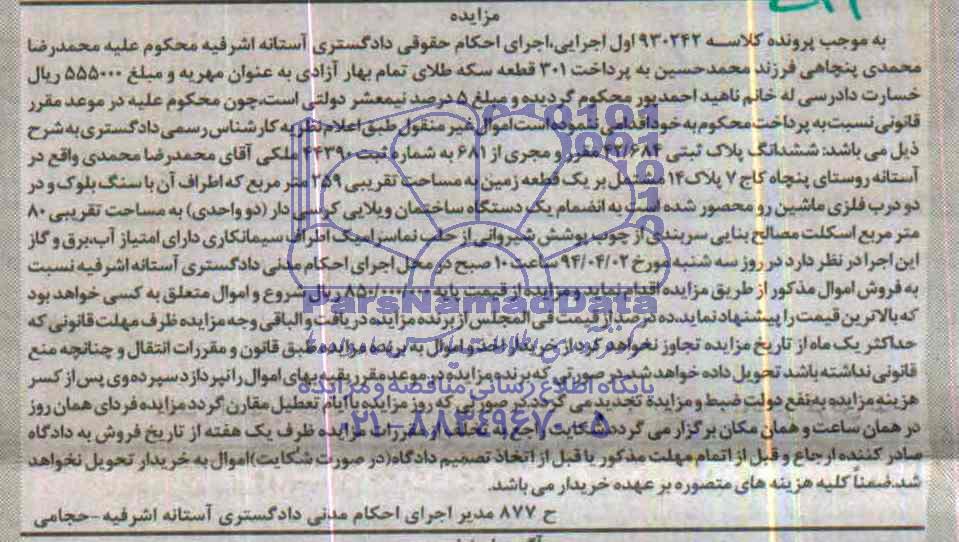 مزایده
به موجب پرونده کلاسه ۹۳۰۲۴۲ اول اجرایی،اجرای احکام حقوقی دادگستری آستانه اشرفیه محکوم علیه محمدرضا
محمدی پنچاهی فرزند محمدحسین به پرداخت ۳۰۱ قطعه سکه طلای تمام بهار آزادی به عنوان مهریه و مبلغ ۵۵۵۰۰۰ ریال
خسارت دادرسی له خانم ناهید احمدپور محکوم گردیده و مبلغ ۵ درصد نیمعشر دولتی است،چون محکوم علیه در موعد مقرر
قانونی نسبت به پرداخت محکوم به خود اقدامی ننموده است اموال غیر منقول طبق اعلام نظریه کارشناس رسمی دادگستری به شرح
ذیل می باشد: ششدانگ پلاک ثبتی ۴۲/۶۸۴ مفرز و مجزی از ۶۸۱ به شماره ثبت ۴۴۳۹۰ ملکی آقای محمدرضا محمدی واقع در
آستانه روستای پنچاه کاج ۷ پلاک۱۴ مشتمل بر یک قطعه زمین به مساحت تقریبی ۲۵۹ متر مربع که اطراف آن با سنگ بلوک و در
دو درب فلزی ماشین رو محصور شده است به انضمام یک دستگاه ساختمان ویلایی کرسی دار (دو واحدی) به مساحت تقریبی ۸۰
متر مربع اسکلت مصالح بنایی سربندی از چوب پوشش شیروانی از حلب نماسرامیک اطراف سیمانکاری دارای امتیاز آب،برق و گاز
این اجرا در نظر دارد در روز سه شنبه مورخ ۹۴/۰۴/۰۲ ساعت ۱۰ صبح در محل اجرای احکام مدنی دادگستری آستانه اشرفیه نسبت
به فروش اموال مذکور از طریق مزایده اقدام نماید و مزایده از قیمت پایه ۸۵۰/۰۰۰/۰۰۰ ریال شروع و اموال متعلق به کسی خواهد بود
که بالاترین قیمت را پیشنهاد نماید،ده درصد از قیمت فی المجلس از برنده مزایده دریافت و الباقی وجه مزایده ظرف مهلت قانونی که
حداکثر یک ماه از تاریخ مزایده تجاوز نخواهد کرد از خریدار اخذ و اموال به برنده مزایده طبق قانون و مقررات انتقال و چنانچه منع
قانونی نداشته باشد تحویل داده خواهد شد،در صورتی که برنده مزایده در موعد مقرر بقیه بهای اموال را نپردازد سپرده وی پس از کسر
هزینه مزایده به نفع دولت ضبط و مزایده تجدید می گردد،در صورتی که روز مزایده با ایام تعطیل مقارن گردد مزایده فردای همان روز
در همان ساعت و همان مکان برگزار می گردد،شکایت راجع به تخلف از مقررات مزایده ظرف یک هفته از تاریخ فروش به دادگاه
صادر کننده ارجاع و قبل از اتمام مهلت مذکور یا قبل از اتخاذ تصمیم دادگاه(در صورت شکایت)اموال به خریدار تحویل نخواهد
شد.ضمناً کلیه هزینه های متصوره بر عهده خریدار می باشد.
ح ۸۷۷ مدیر اجرای احکام مدنی دادگستری آستانه اشرفیه-حجامی
ParsNamadData
پایگاه اطلاع رسانی مناقصه و مزایده
۰۲۱-۸۸۳۴۹۶۷۰-۵